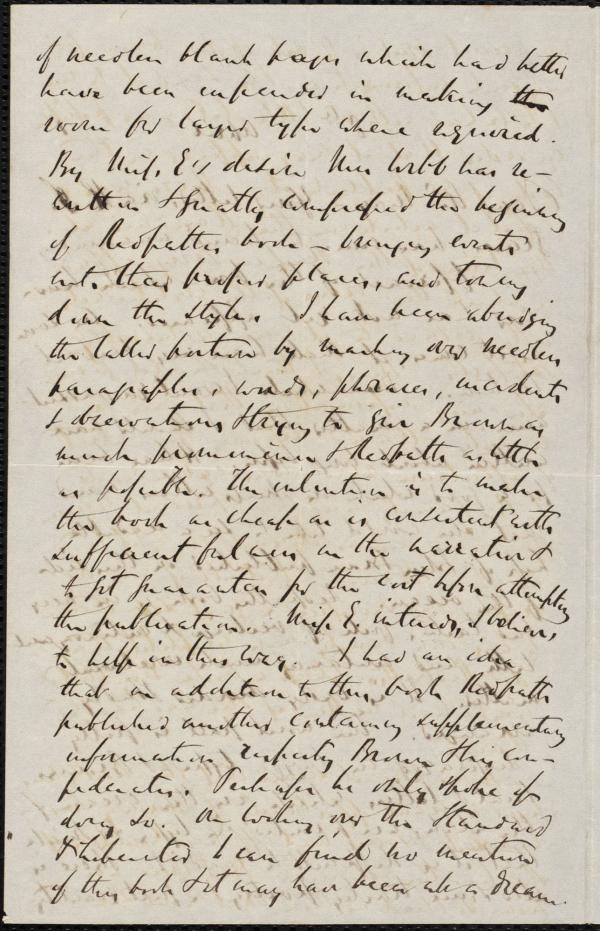 of needless blank pages which had better
have been expended in making the
room for larger type where required.
By Miss E's desire Mrs Webb has re-
written & greatly compressed the beginning
of Redpath's book – bringing events
into their proper places, and toning
down the style. I have been abridging
the latter portion by marking over needless
paragraphs, words, phrases, incidents
& observations & trying to give Brown as
much prominence & Redpath as little
as possible. The intention is to make
the book as cheap as is consistent with
sufficient fulness in the narration &
to get guarantees for the cost before attempting
the publication. Miss E. intends, I believe,
to help in this way. I had an idea
that in addition to this book Redpath
published another containing supplementary
information respecting Brown & his con-
federates. Perhaps he only spoke of
doing so. On looking over the Standard
& Liberator I can find no mention
of this book & it may have been all a dream.